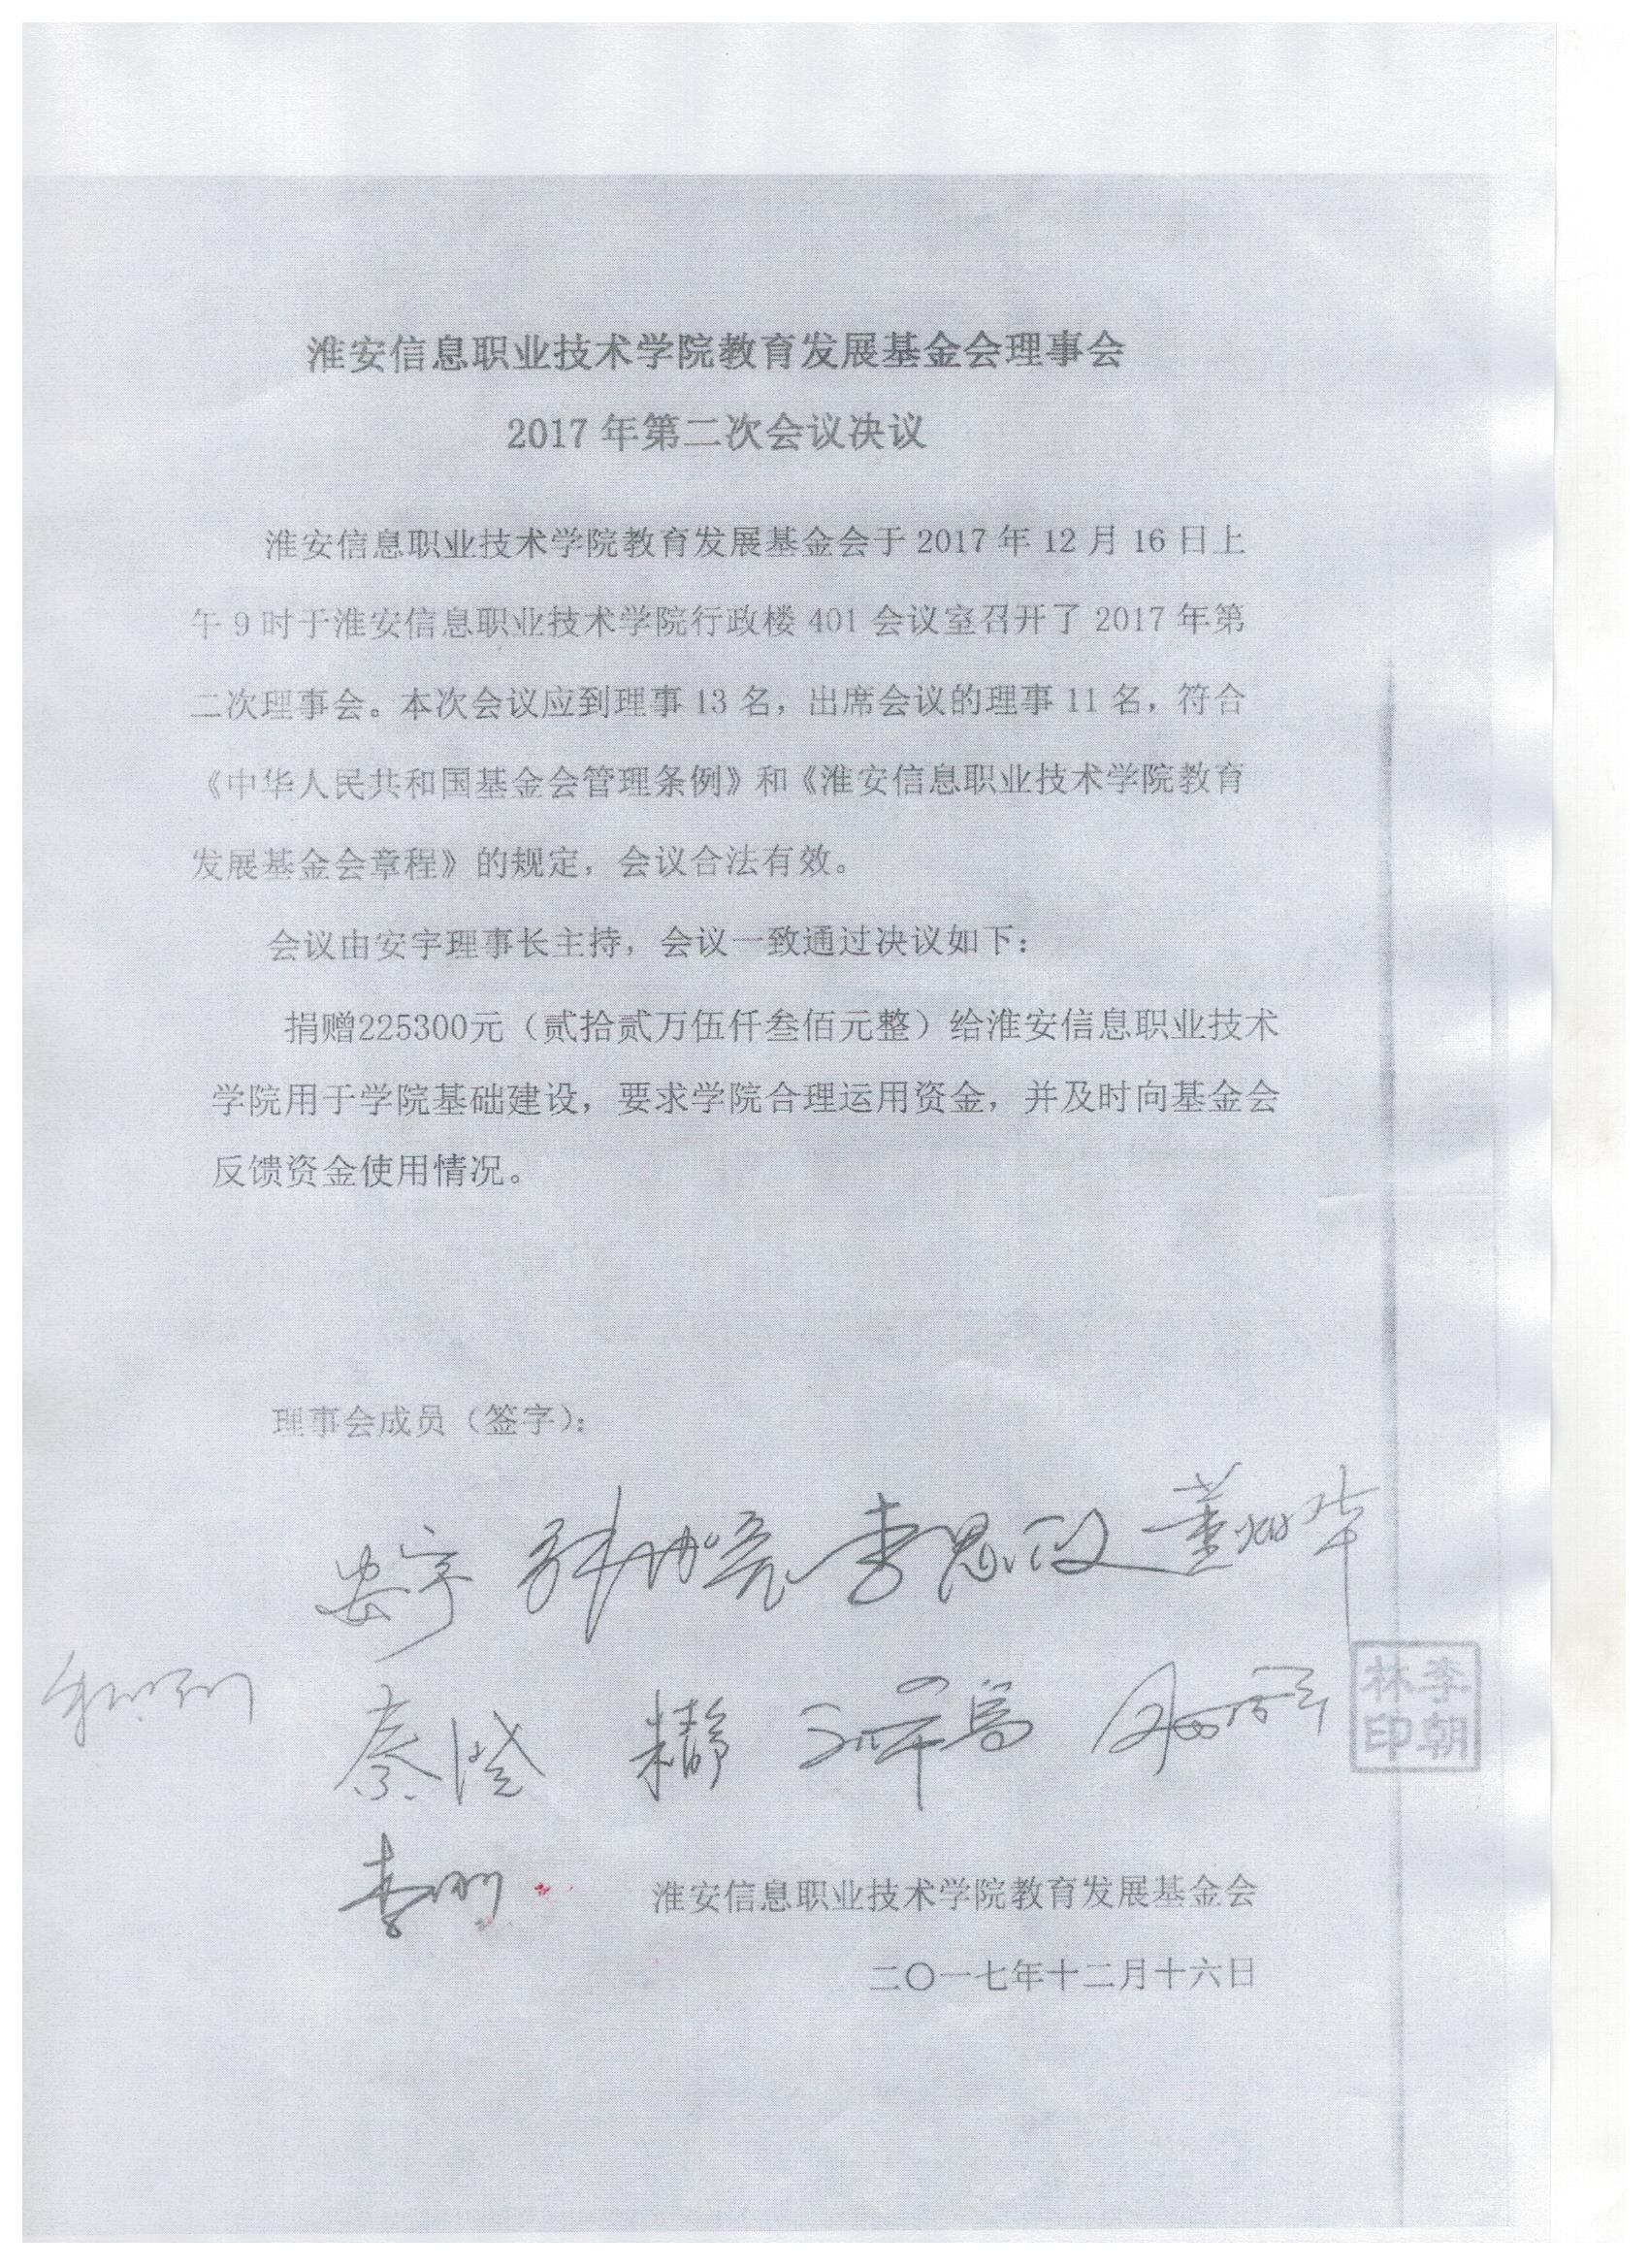 淮安信息职业技术学院教育发展基金会理事会
2017 年第二次会议决议
淮安信息职业技术学院教育发展基金会于 2017 年 12 月 16 日上
午 9 时于淮安信息职业技术学院行政楼 401 会议室召开了 2017 年第
二次理事会。本次会议应到理事 13 名，出席会议的理事 11 名，符合
《中华人民共和国基金会管理条例》和《淮安信息职业技术学院教育
发展基金会章程》的规定，会议合法有效。
会议由安宇理事长主持，会议一致通过决议如下：
捐赠225300元（贰拾贰万伍仟叁佰元整）给淮安信息职业技术
学院用于学院基础建设，要求学院合理运用资金，并及时向基金会
反馈资金使用情况。
理事会成员（签字）：
安宇
李朝林印
淮安信息职业技术学院教育发展基金会
二〇一七年十二月十六日